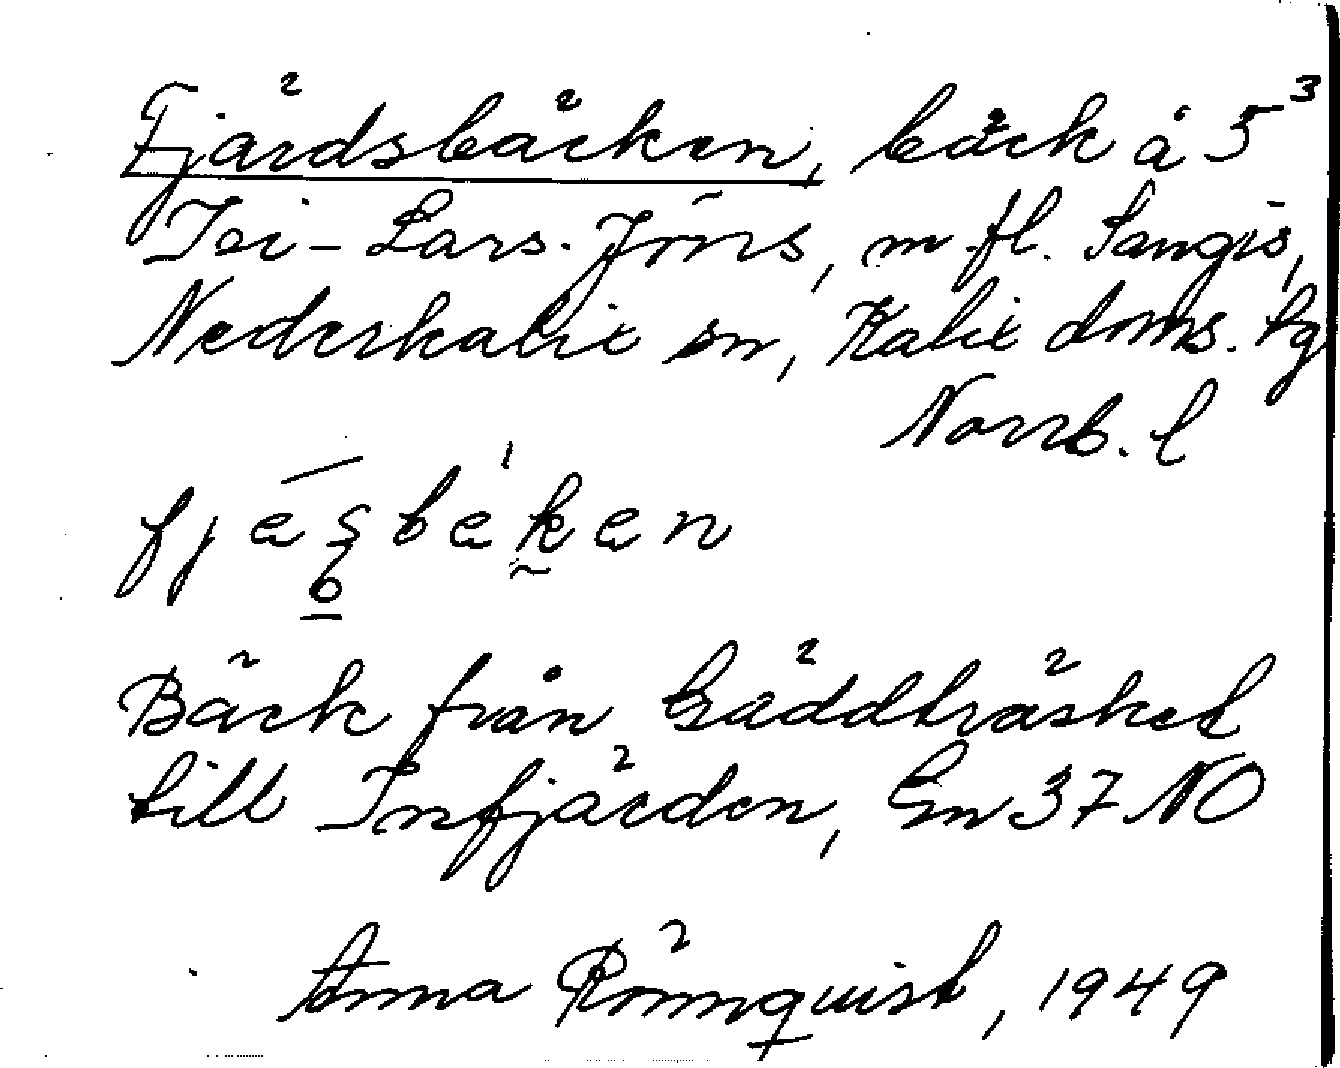 Fjärdsbäcken, bäck å 5³
Tei-Lars-Jöns, m fl. Sangis,
Nederkalix sn, Kalix doms. tg
Norrb. l
fjäsbäken
6
Bäck från Gäddträsket
till Infjärden, Gn 37 NO
Anna Rönnquist, 1949